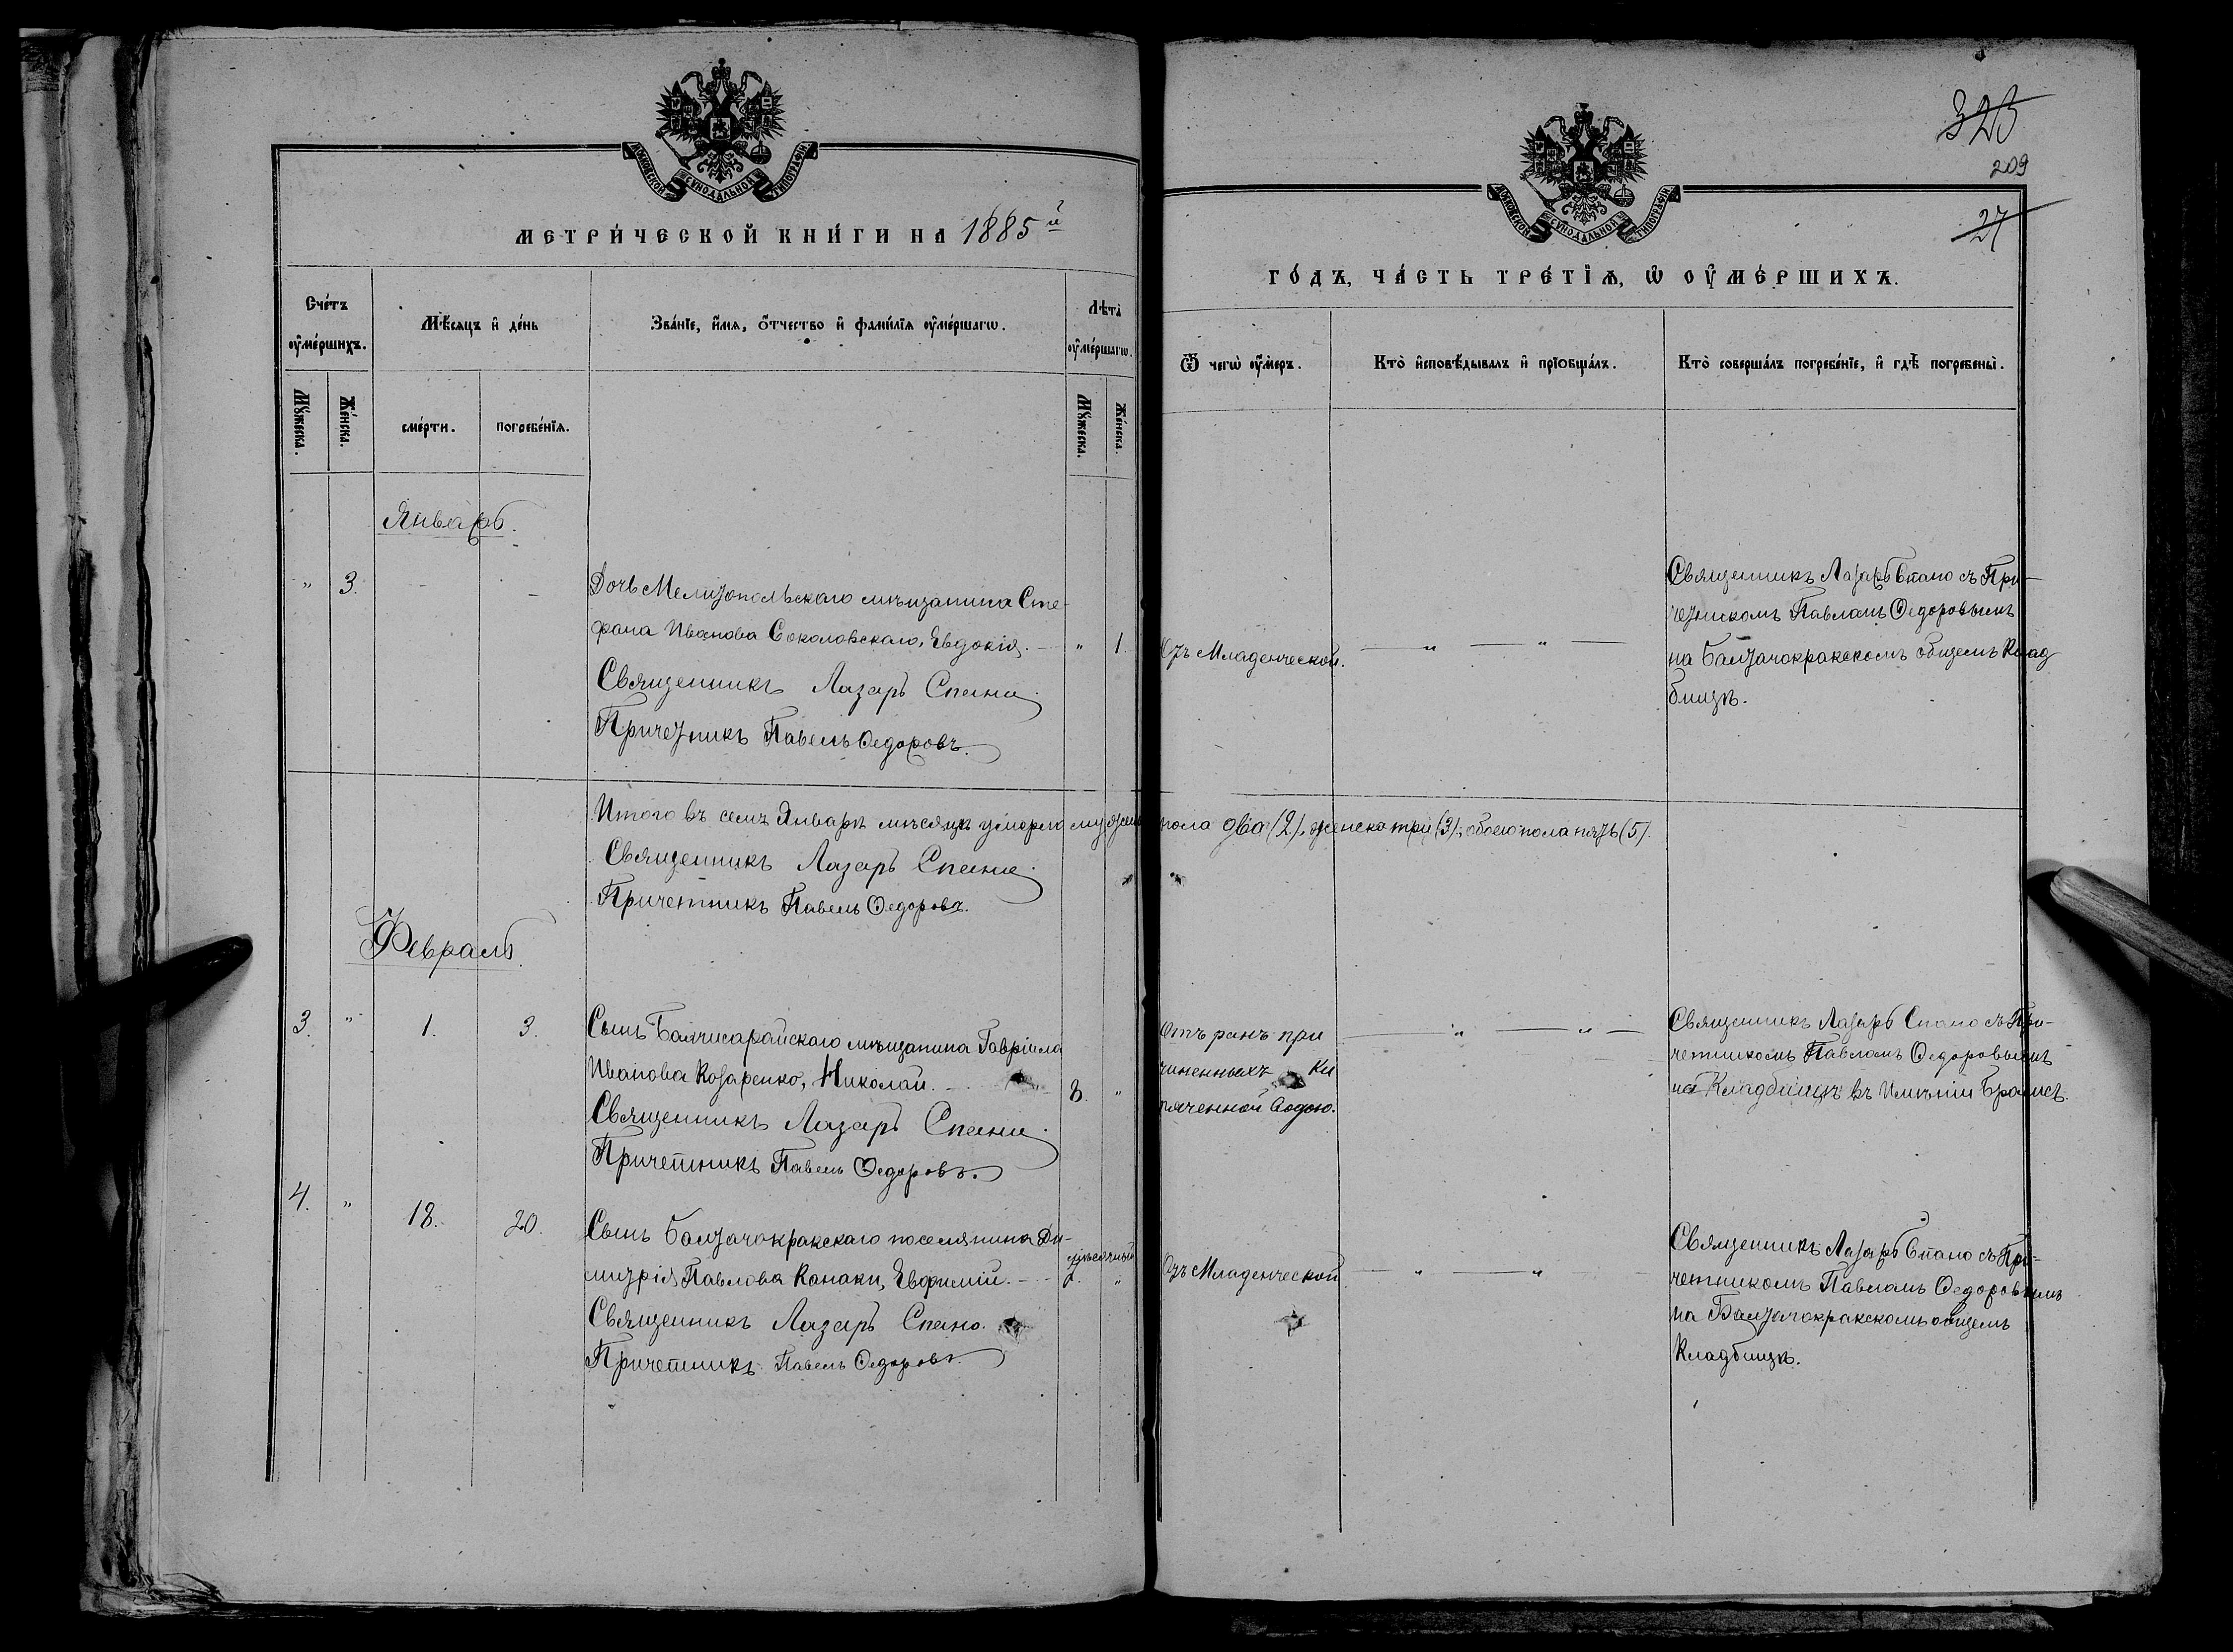 МОСКОВСКОЙ СУНОДАЛЬНОЙ ТИПОГРАФІИ
МЕТРИ́ЧЕСКОЙ КНИ́ГИ НА 1885й
Сче́тъ ᲂу҆ме́ршихъ.
Мѣ́сяцъ и҆ де́нь
Зва́нїе, и҆́мя, ѻ҆́тчество и҆ фами́лїя ᲂу҆ме́ршагѡ.
Лѣта̀ ᲂу҆ме́ршагѡ.
Мꙋ́жеска.
Же́нска.
сме́рти.
погребе́нїѧ.
Мꙋ́жеска.
Же́нска.
Январь.
„ 3. - -
Дочь Мелитопольскаго мѣщанина Сте-
фана Иванова Соколовскаго, Евдокія. — „ 1.
Священникъ Лазарь Спано
Причетникъ Павелъ Ѳедоровъ.
Итого въ семъ Январѣ мѣсяцѣ умерло мужеска пола два (2), женска три (3), обоего пола пять (5).
Священникъ Лазарь Спано
Причетникъ Павелъ Ѳедоровъ.
Февраль.
3. „ 1. 3.
Сынъ Бахчисарайскаго мѣщанина Гавріила
Иванова Козаренко, Николай. 8. „
Священникъ Лазарь Спано
Причетникъ Павелъ Ѳедоровъ.
4. „ 18. 20.
Сынъ Балтачокракскаго поселянина Ди-
митрія Павлова Канаки, Евфимій. — мѣсячный „
Священникъ Лазарь Спано.
Причетникъ Павелъ Ѳедоровъ.
323
209
27
МОСКОВСКОЙ СУНОДАЛЬНОЙ ТИПОГРАФІИ
ГО́ДЪ, ЧА́СТЬ ТРЕ́ТЇѦ, Ѡ҆ ОУ҆МЕ́РШИХЪ.
Ѿ чегѡ̀ ᲂу҆́меръ.
Кто̀ и҆сповѣ́дывалъ и҆ прїѻбща́лъ.
Кто̀ соверша́лъ погребе́нїе, и҆ гдѣ̀ погребены̀.
Отъ Младенческой. — „ — „ —
Священникъ Лазарь Спано съ При-
четникомъ Павломъ Ѳедоровымъ
на Балтачокракскомъ общемъ Клад
бищѣ.
Отъ ранъ при
чиненныхъ Ки
пяченной водою. — „ — „ —
Священникъ Лазарь Спано съ При-
четникомъ Павломъ Ѳедоровымъ
на Кладбищѣ въ Имѣніи
Отъ Младенческой — „ — „ —
Священникъ Лазарь Спано съ При-
четникомъ Павломъ Ѳедоровымъ
на Балтачокракскомъ общемъ
Кладбищѣ.